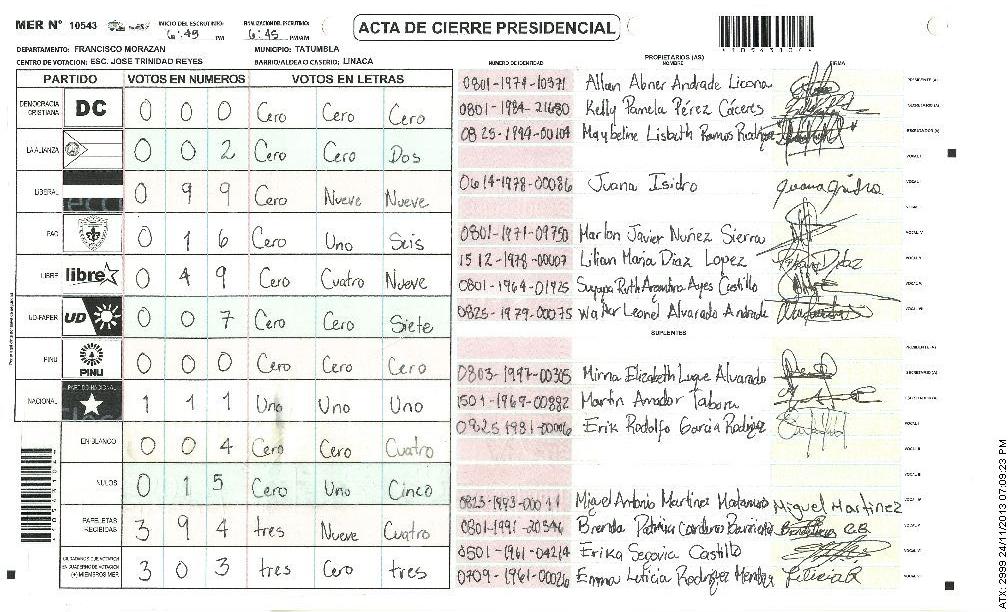 MER N° 10543
INICIO DEL ESCRUTINIO:
6:45 PM
FINALIZACION DEL ESCRUTINIO:
6:45 PM/AM
ACTA DE CIERRE PRESIDENCIAL
DEPARTAMENTO: FRANCISCO MORAZAN
MUNICIPIO: TATUMBLA
CENTRO DE VOTACION: ESC. JOSE TRINIDAD REYES
BARRIO/ALDEA O CASERIO: LINACA
PARTIDO VOTOS EN NUMEROS VOTOS EN LETRAS
DEMOCRACIA CRISTIANA DC 0 0 0 Cero Cero Cero
LA ALIANZA 0 0 2 Cero Cero Dos
LIBERAL 0 9 9 Cero Nueve Nueve
PAC 0 1 6 Cero Uno Seis
LIBRE libre 0 4 9 Cero Cuatro Nueve
UD-FAPER UD 0 0 7 Cero Cero Siete
PINU PINU 0 0 0 Cero Cero Cero
NACIONAL PARTIDO NACIONAL 1 1 1 Uno Uno Uno
EN BLANCO 0 0 4 Cero Cero Cuatro
NULOS 0 1 5 Cero Uno Cinco
PAPELETAS RECIBIDAS 3 9 4 tres Nueve Cuatro
CIUDADANOS QUE VOTARON EN CUADERNO DE VOTACION (+) MIEMBROS MER 3 0 3 tres Cero tres
NUMERO DE IDENTIDAD
PROPIETARIOS (AS)
NOMBRE
FIRMA
0801-1974-10371 Allan Abner Andrade Licona PRESIDENTE (A)
0801-1984-21680 Kelly Pamela Pérez Cáceres SECRETARIO (A)
0825-1994-00104 Maybeline Lisbeth Ramos Rodríguez ESCRUTADOR (A)
VOCAL I
0614-1978-00086 Juana Isidro
0801-1971-09750 Marlon Javier Nuñez Sierra
1512-1978-00007 Lilian Maria Diaz Lopez
0801-1964-01925 Ruth Ayes Castillo
0825-1979-00075 Walter Leonel Alvarado Andrade
SUPLENTES
PRESIDENTE (A)
0803-1997-00305 Mirna Elizabeth Luque Alvarado SECRETARIO (A)
1501-1969-00882 Martin Amador Tabora
0825 1981-00006 Erik Rodolfo Garcia Rodriguez
Miguel Antonio Martinez Miguel Martinez
0801-1991-20546 Brenda Patricia
0501-1961-04214 Erika Segovia Castillo
0709-1961-00026 Emma Leticia Rodriguez Mendez
ATX: 2999 24/11/2013 07:09:23 PM